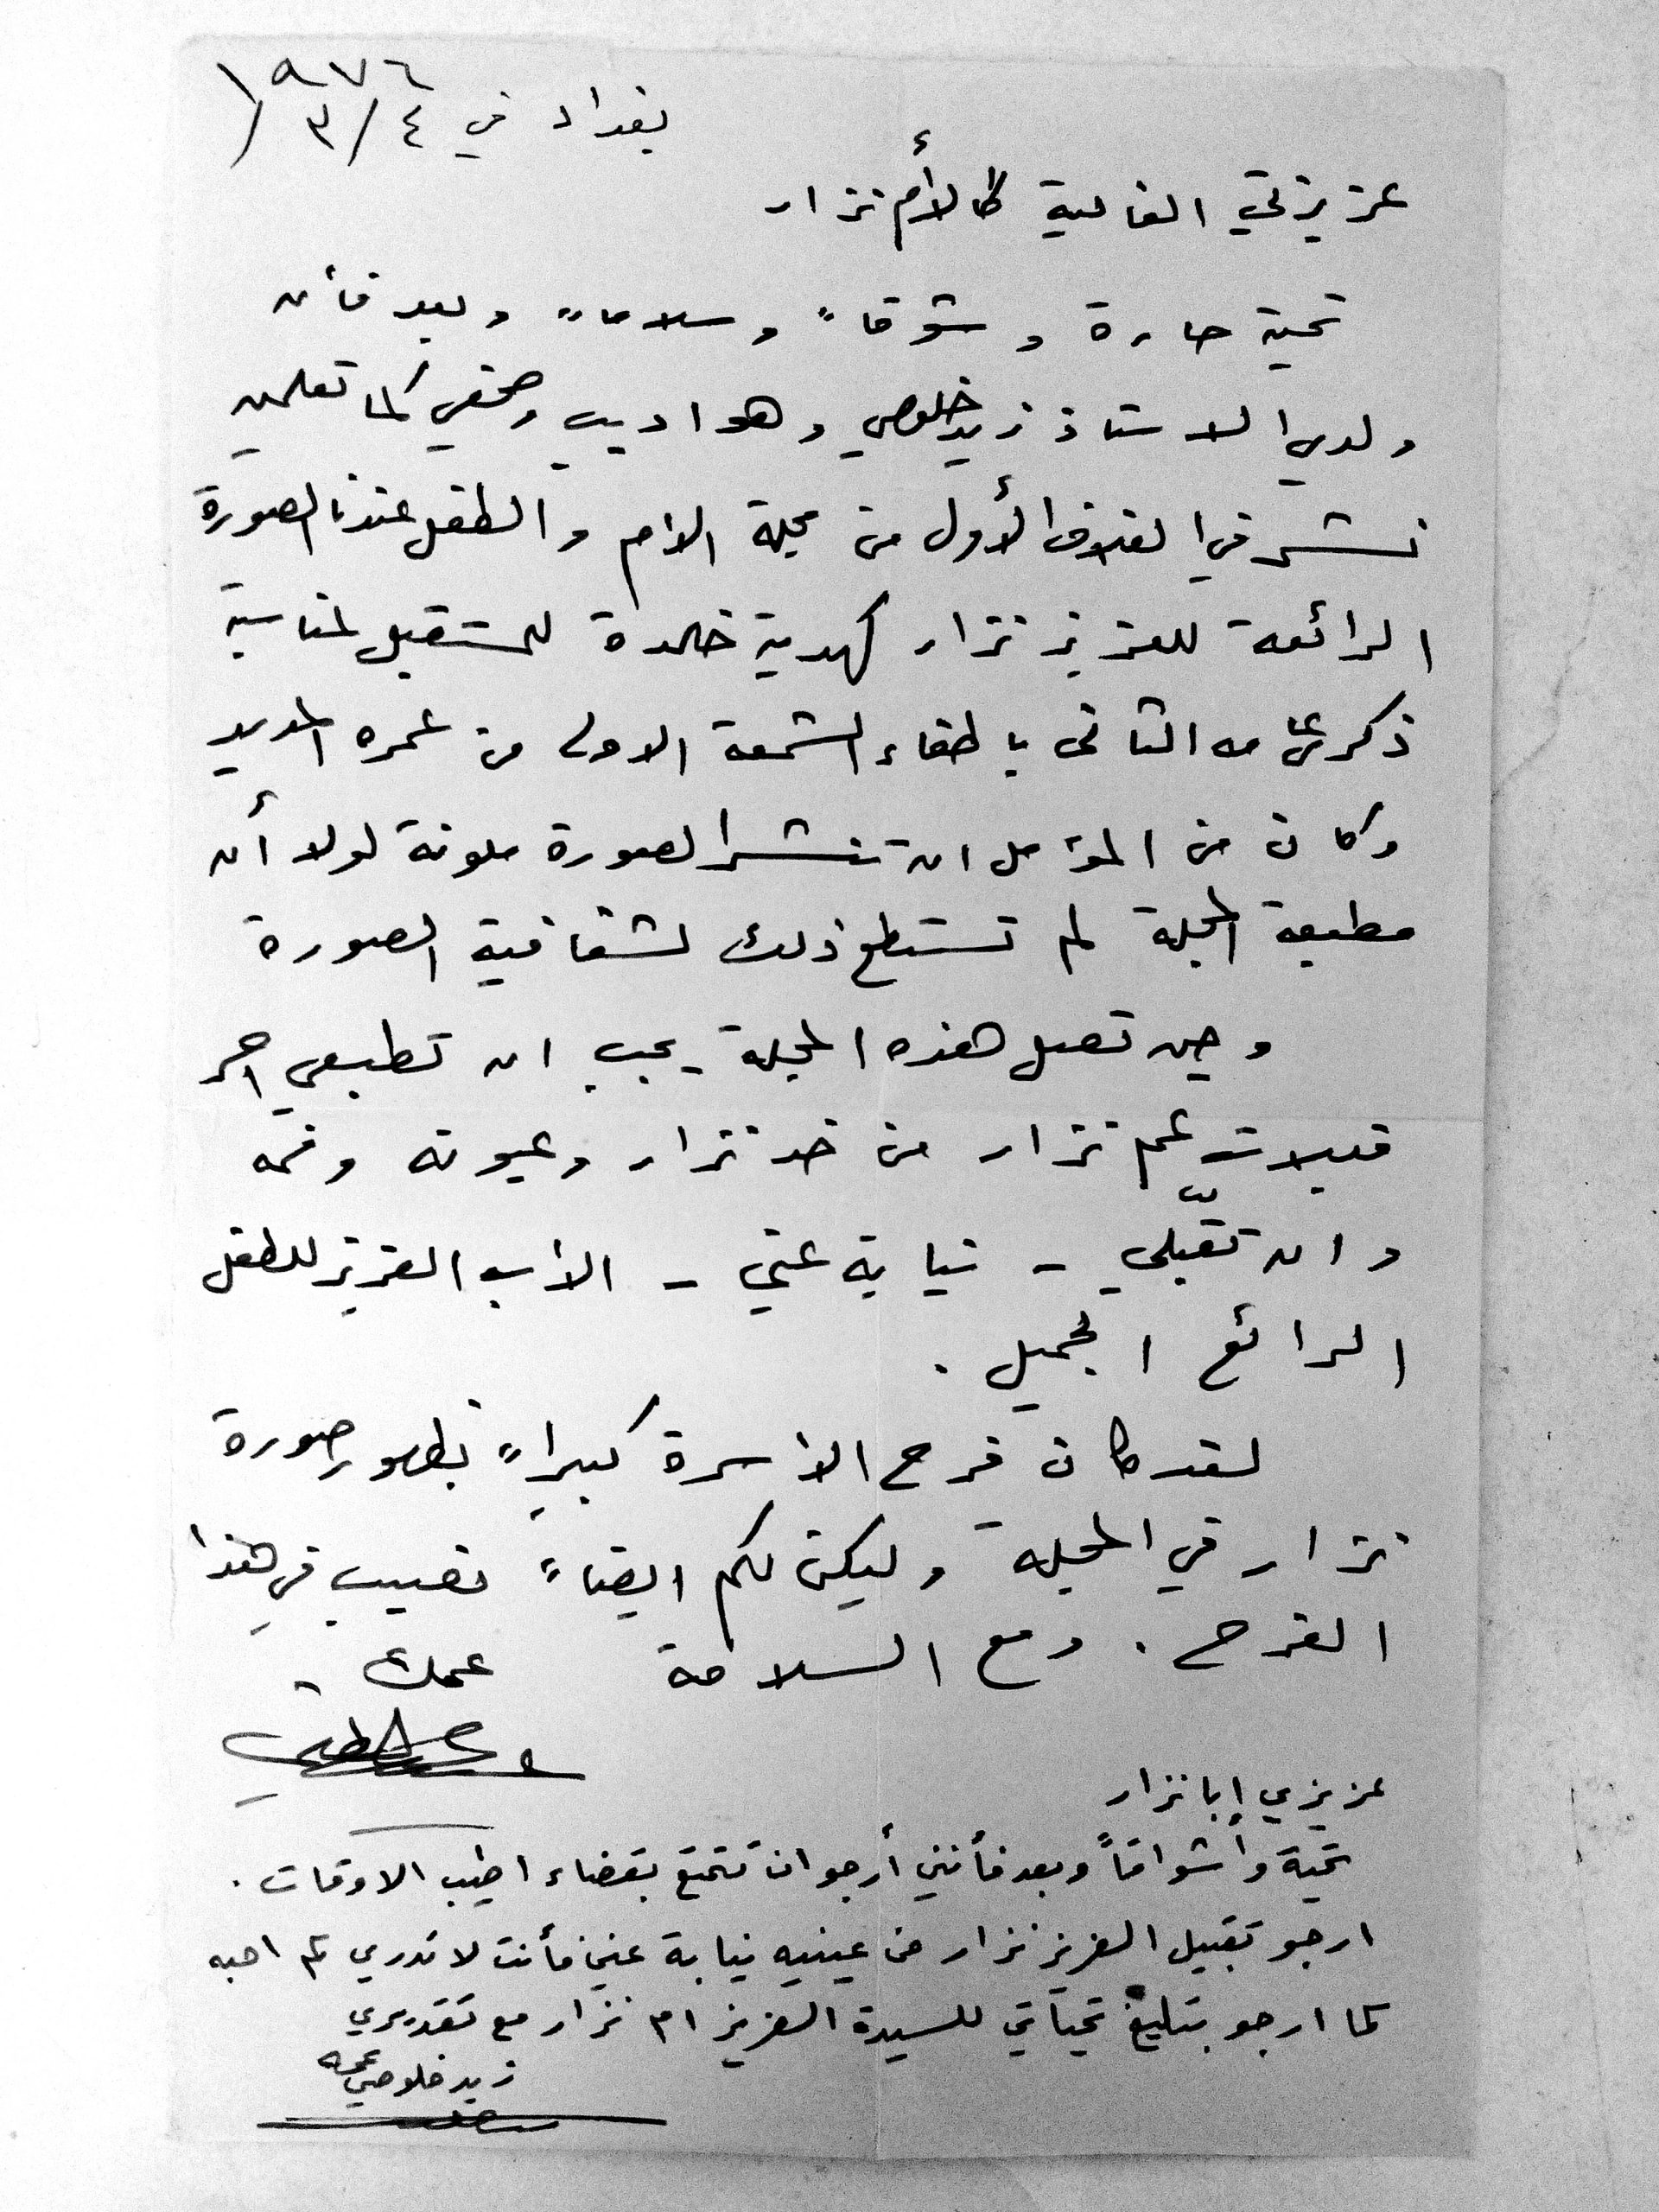 بغداد في ٤/٣/١٩٧٦
عزيزتي الغالية كالأم نزار
تحية حارة وشوقاً وسلاماً وبعد فأن
ولدي الاستاذ زيد خلوصي وهو اديب وصحفي كما تعلمين
نشر في الغلاف الأول من مجلة الام والطفل عندنا الصورة
الرائعة للعزيز نزار كهدية خالدة للمستقبل لمناسبة
ذكرى عامه الثاني باطفاء الشمعة الاولى من عمره المديد
وكان من المؤمل ان تنشر الصورة ملونة لولا أن
مطبعة المجلة لم تستطع ذلك لشفافية الصورة
وحين تصل هذه المجلة يجب ان تطبعي احر
قبلات عم نزار من خد نزار وعيونه وفمه
وان تقبّلي - نيابة عني - الأب العزيز للطفل
الرائع الجميل .
لقد كان فرح الاسرة كبيراً بظهور صورة
نزار في المجلة وليكن لكم ايضاً نصيب في هذا
الفرح . ومع السلامة عمك
عزيزي ابا نزار
تحية وأشواقاً وبعد فأنني أرجو ان تتمتع بقضاء اطيب الاوقات .
ارجو تقبيل العزيز نزار من عينيه نيابة عني فأنت لا تدري كم احبه
كما ارجو بتبليغ تحياتي للسيدة العزيز ام نزار مع تقديري
عمه
زيد خلوصي